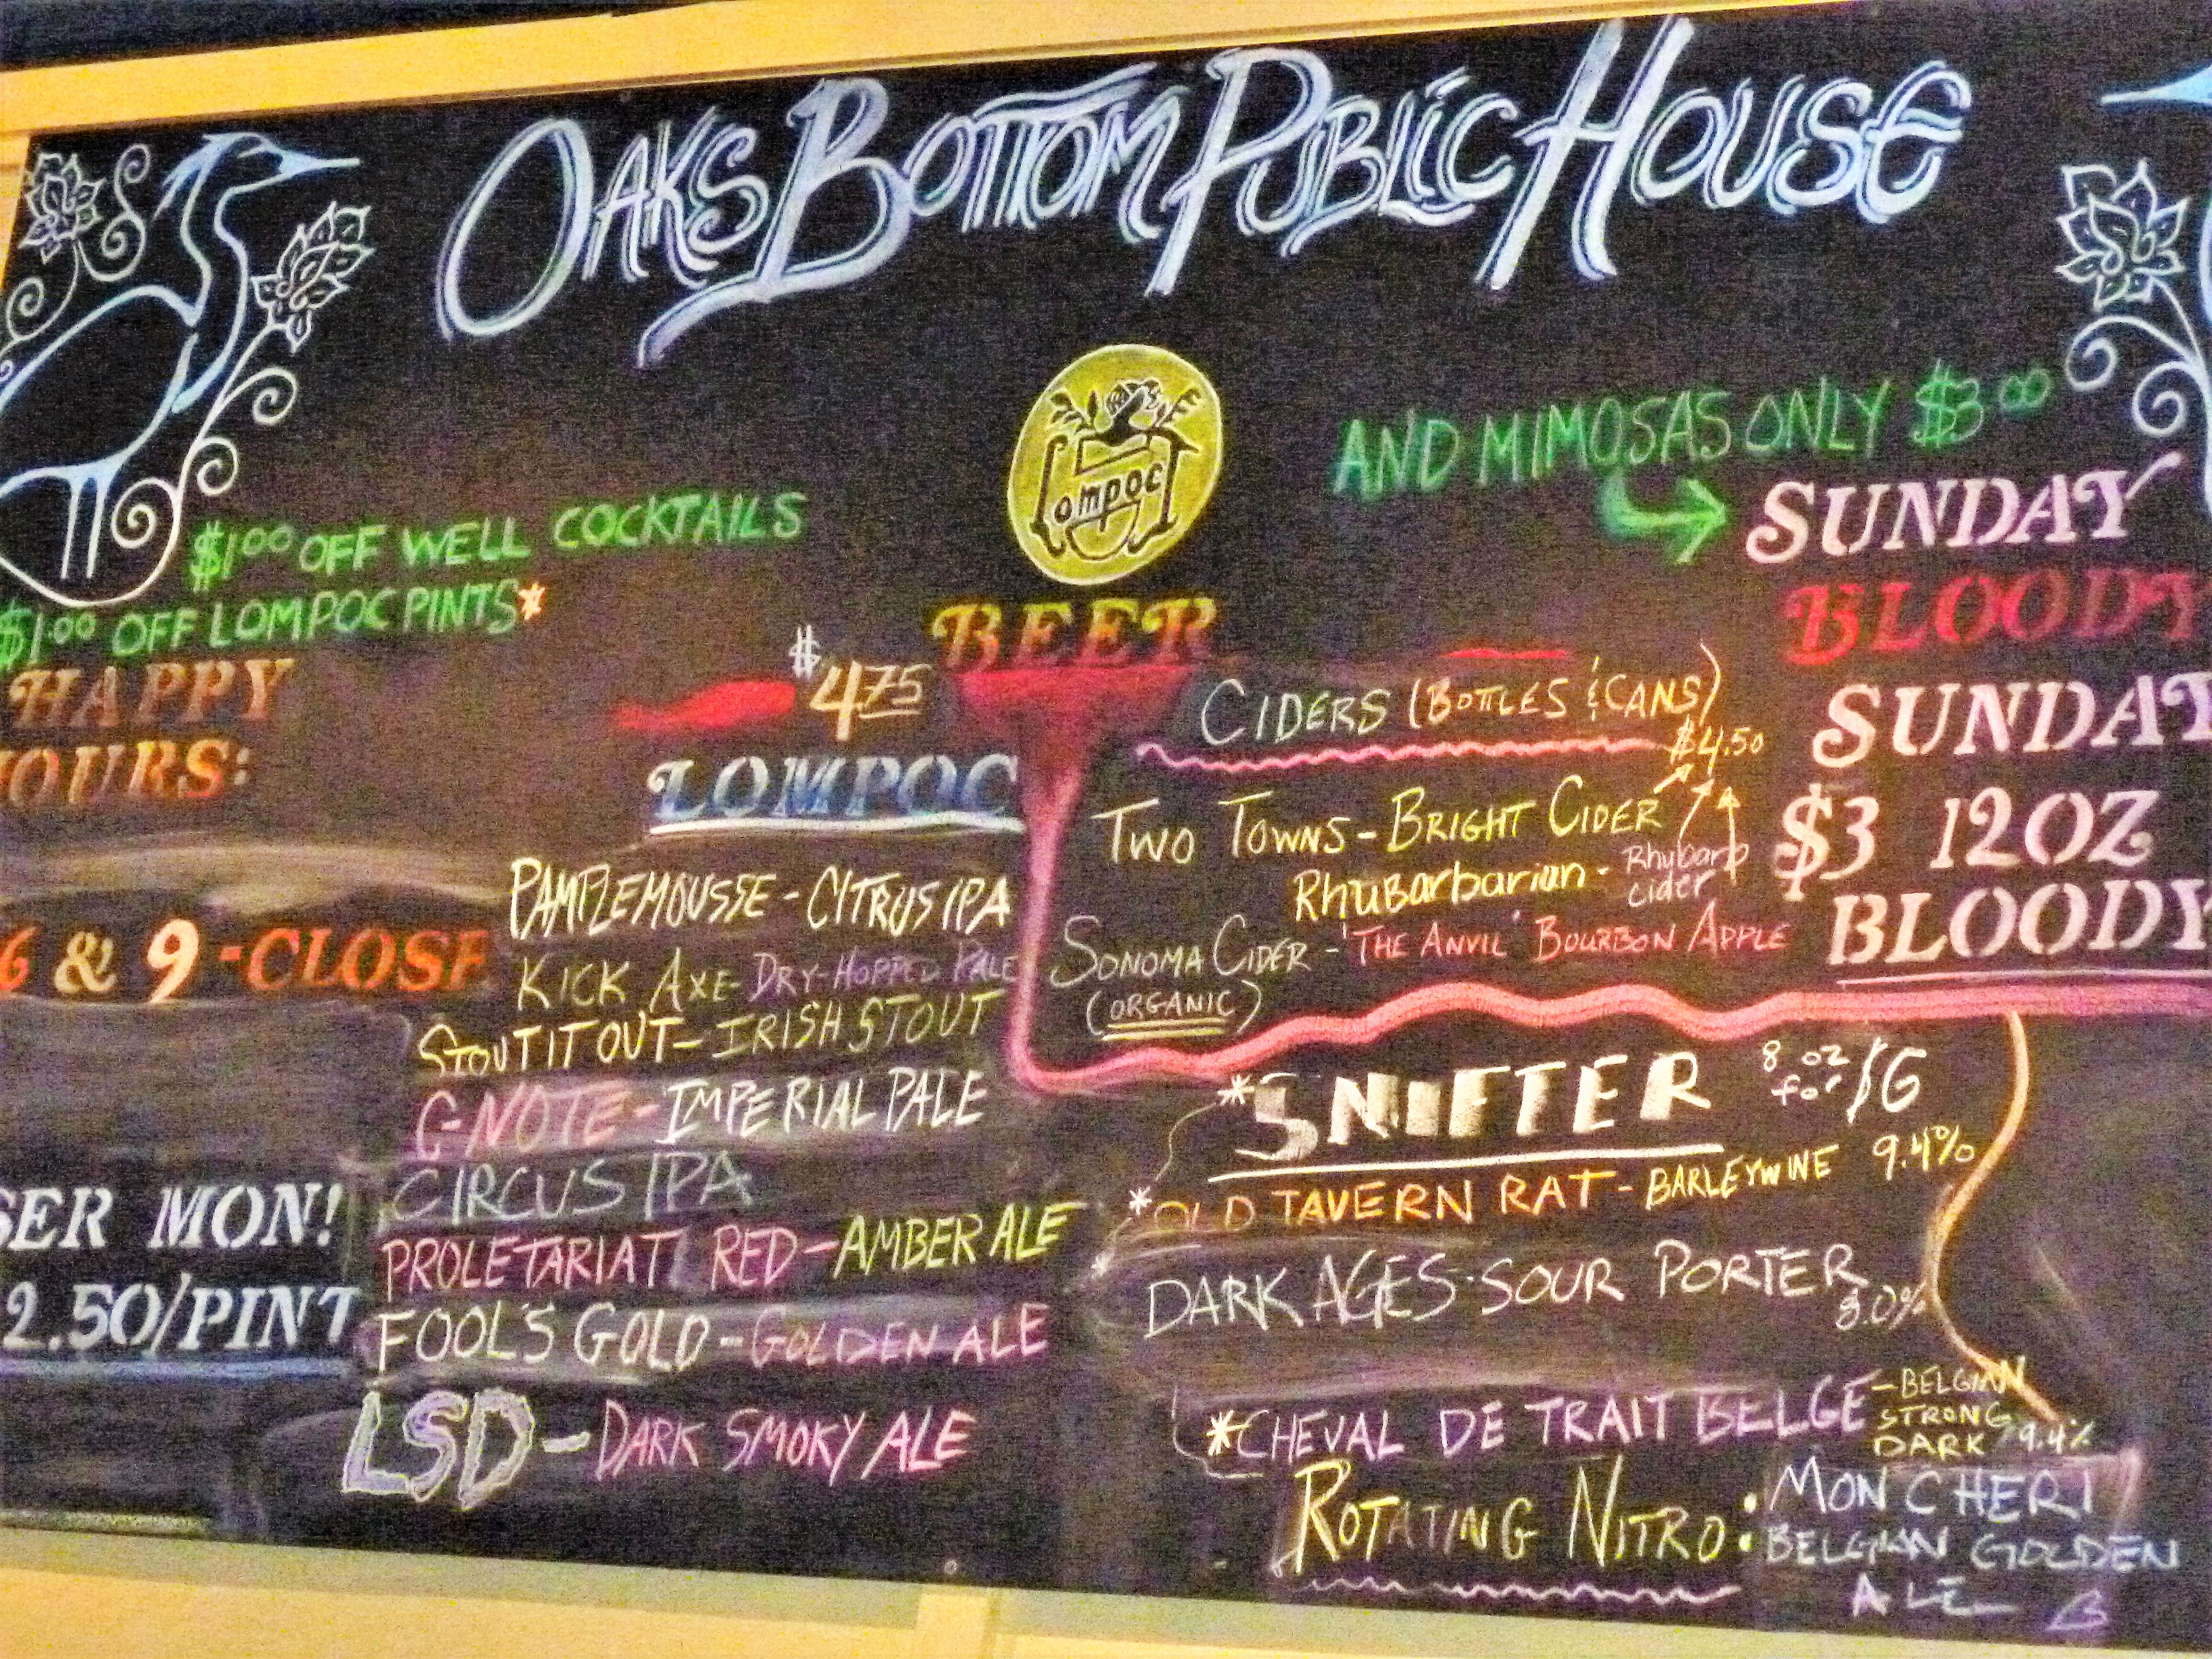 OAKS BOTTOM PUBLIC HOUSE
Lompoc
AND MIMOSAS ONLY $3.00
$1.00 OFF WELL COCKTAILS
$1.00 OFF LOMPOC PINTS*
HAPPY
OURS:
6 & 9-CLOSE
SER MON!
2.50/PINT
BEER
$4.75
LOMPOC
PAMPLEMOUSSE - CITRUS IPA
KICK AXE - DRY-HOPPED PALE
STOUT IT OUT - IRISH STOUT
C-NOTE - IMPERIAL PALE
CIRCUS IPA
PROLETARIAT RED - AMBER ALE
FOOL'S GOLD - GOLDEN ALE
LSD - DARK SMOKY ALE
CIDERS (BOTTLES & CANS)
$4.50
TWO TOWNS - BRIGHT CIDER
Rhubarbarian - Rhubarb
cider
SONOMA CIDER - 'THE ANVIL' BOURBON APPLE
(ORGANIC)
SUNDAY
BLOODY
SUNDAY
$3 12OZ
BLOODY
*SNIFTER 8 oz
for $6
*OLD TAVERN RAT - BARLEYWINE 9.4%
DARK AGES - SOUR PORTER
8.0%
*CHEVAL DE TRAIT BELGE - BELGIAN
STRONG
DARK 9.4%
ROTATING NITRO: MON CHERI
BELGIAN GOLDEN
ALE